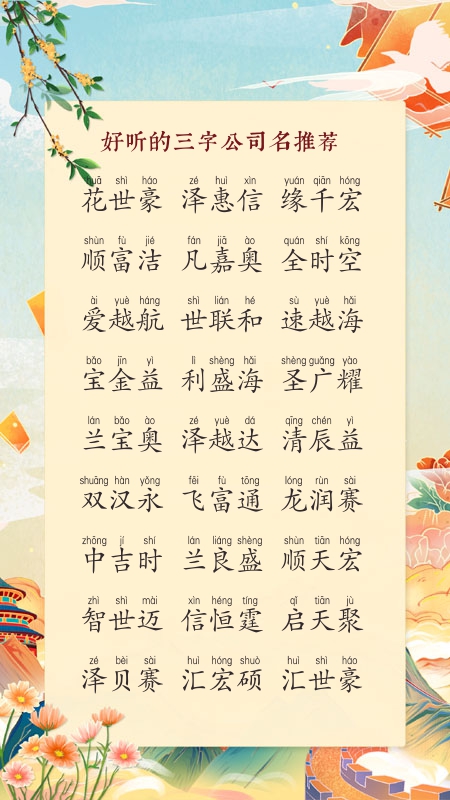 好听的三字公司名推荐
huā shì háo zé huì xìn yuán qiān hóng
花世豪 泽惠信 缘千宏
shùn fù jié fán jiā ào quán shí kōng
顺富洁 凡嘉奥 全时空
ài yuè háng shì lián hé sù yuè hǎi
爱越航 世联和 速越海
bǎo jīn yì lì shèng hǎi shèng guǎng yào
宝金益 利盛海 圣广耀
lán bǎo ào zé yuè dá qīng chén yì
兰宝奥 泽越达 清辰益
shuāng hàn yǒng fēi fù tōng lóng rùn sài
双汉永 飞富通 龙润赛
zhōng jí shí lán liáng shèng shùn tiān hóng
中吉时 兰良盛 顺天宏
zhì shì mài xìn héng tíng qǐ tiān jù
智世迈 信恒霆 启天聚
zé bèi sài huì hóng shuò huì shì háo
泽贝赛 汇宏硕 汇世豪